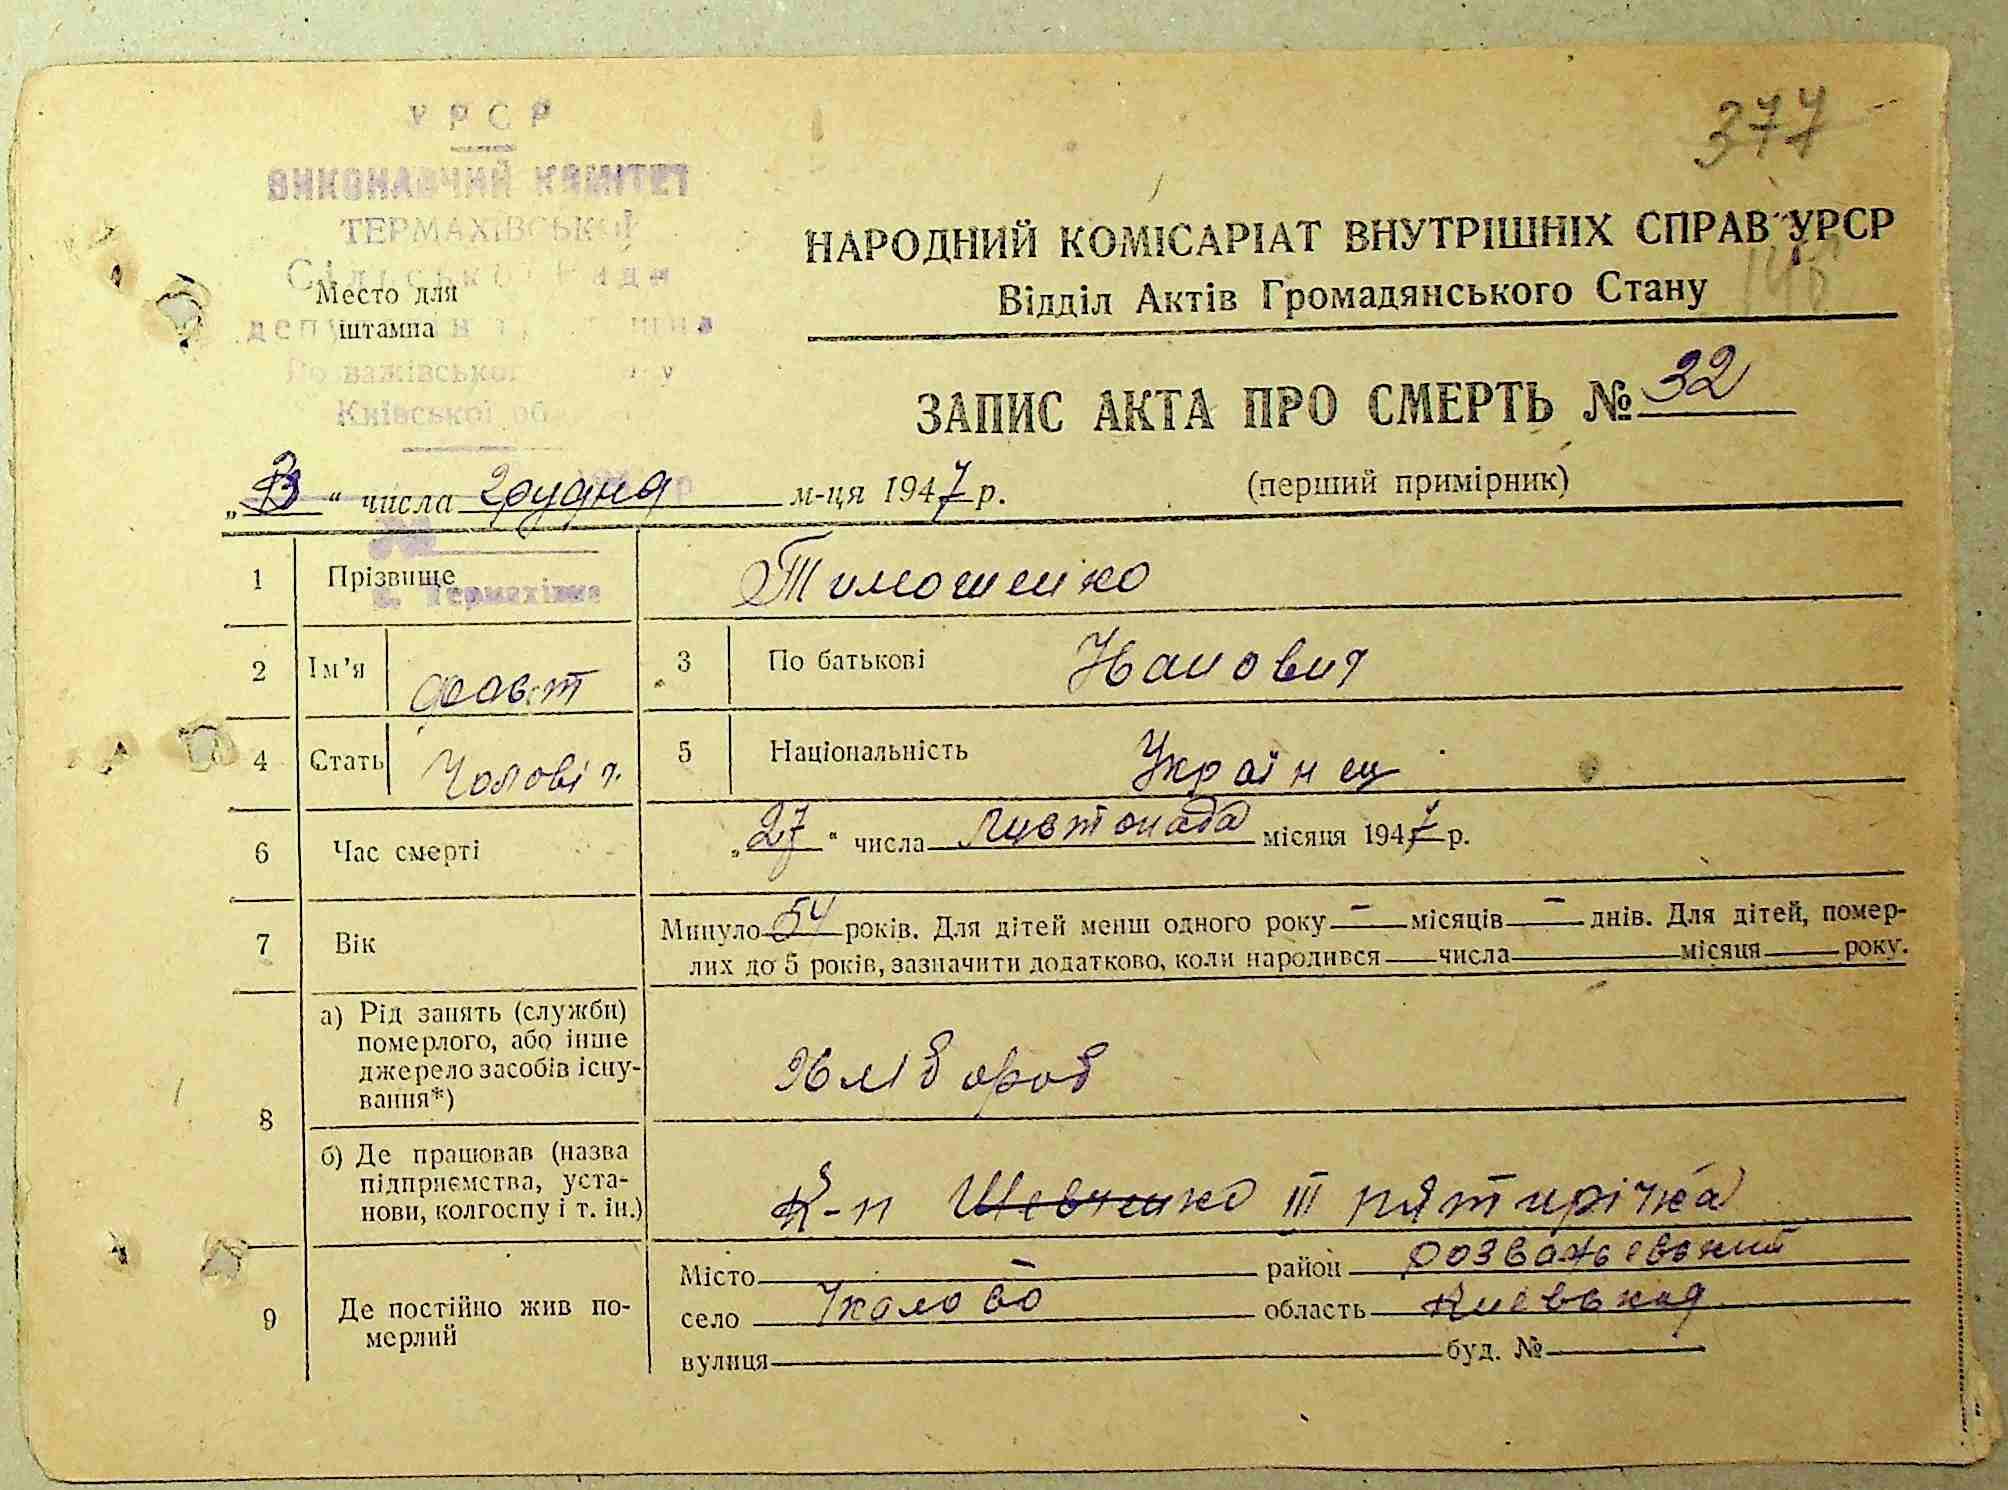 377
УРСР
ВИКОНАВЧИЙ КОМІТЕТ
ТЕРМАХІВСЬКОЇ
Сільської Ради
Київської
с. Термахівка
Место для
штампа
НАРОДНИЙ КОМІСАРІАТ ВНУТРІШНІХ СПРАВ УРСР
Відділ Актів Громадянського Стану
ЗАПИС АКТА ПРО СМЕРТЬ № 32
„ “ числа грудня м-ця 1947 р. (перший примірник)
1 Прізвище Тимошенко
2 Ім'я 3 По батькові Иванович
4 Стать Чоловіч. 5 Національність Українец
6 Час смерті „27“ числа листопада місяця 1947 р.
7 Вік Минуло 54 років. Для дітей менш одного року — місяців — днів. Для дітей, помер-
лих до 5 років, зазначити додатково, коли народився числа місяця року.
8 а) Рід занять (служби)
померлого, або інше
джерело засобів існу-
вання*)
Хлібороб
б) Де працював (назва
підприємства, уста-
нови, колгоспу і т. ін.)
К-п Шевченко III пятирічка
9 Де постійно жив по-
мерлий
Місто — район Розважевский
село область Киевская
вулиця буд. №